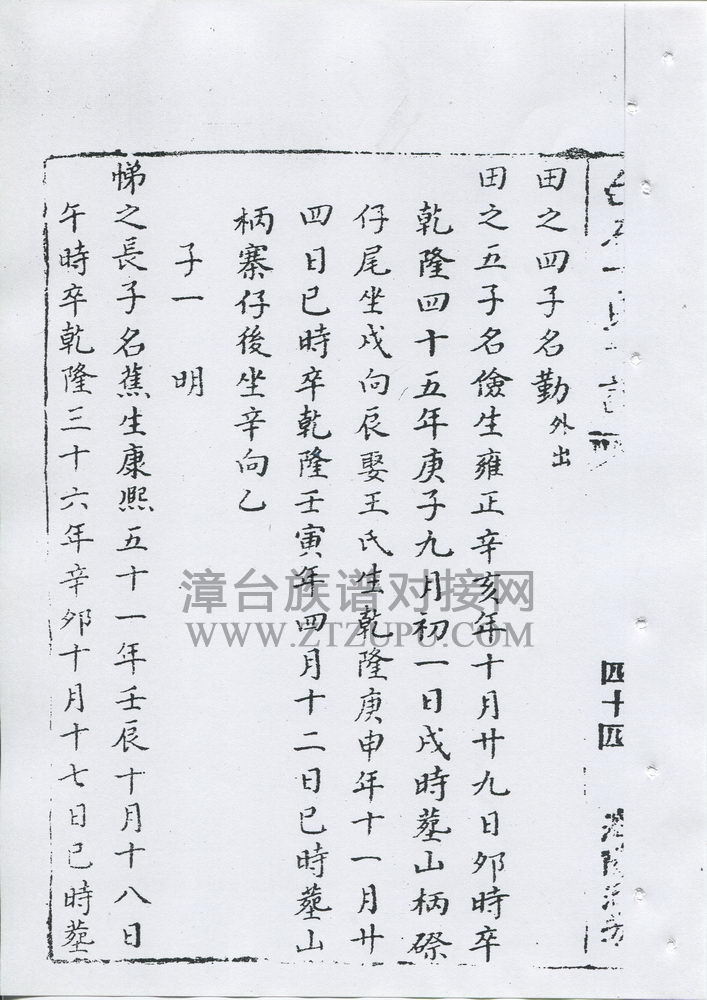 四十四
田之四子名勤外出
田之五子名儉生雍正辛亥年十月廿九日夘時卒
乾隆四十五年庚子九月初一日戌時塟山柄磜
仔尾坐戌向辰娶王氏生乾隆庚申年十一月廿
四日巳時卒乾隆壬寅年四月十二日巳時塟山
柄寨仔後坐辛向乙
子一 明
悌之長子名蕉生康熙五十一年壬辰十月十八日
午時卒乾隆三十六年辛夘十月十七日巳時塟
漳台族谱对接网
WWW.ZTZUPU.COM